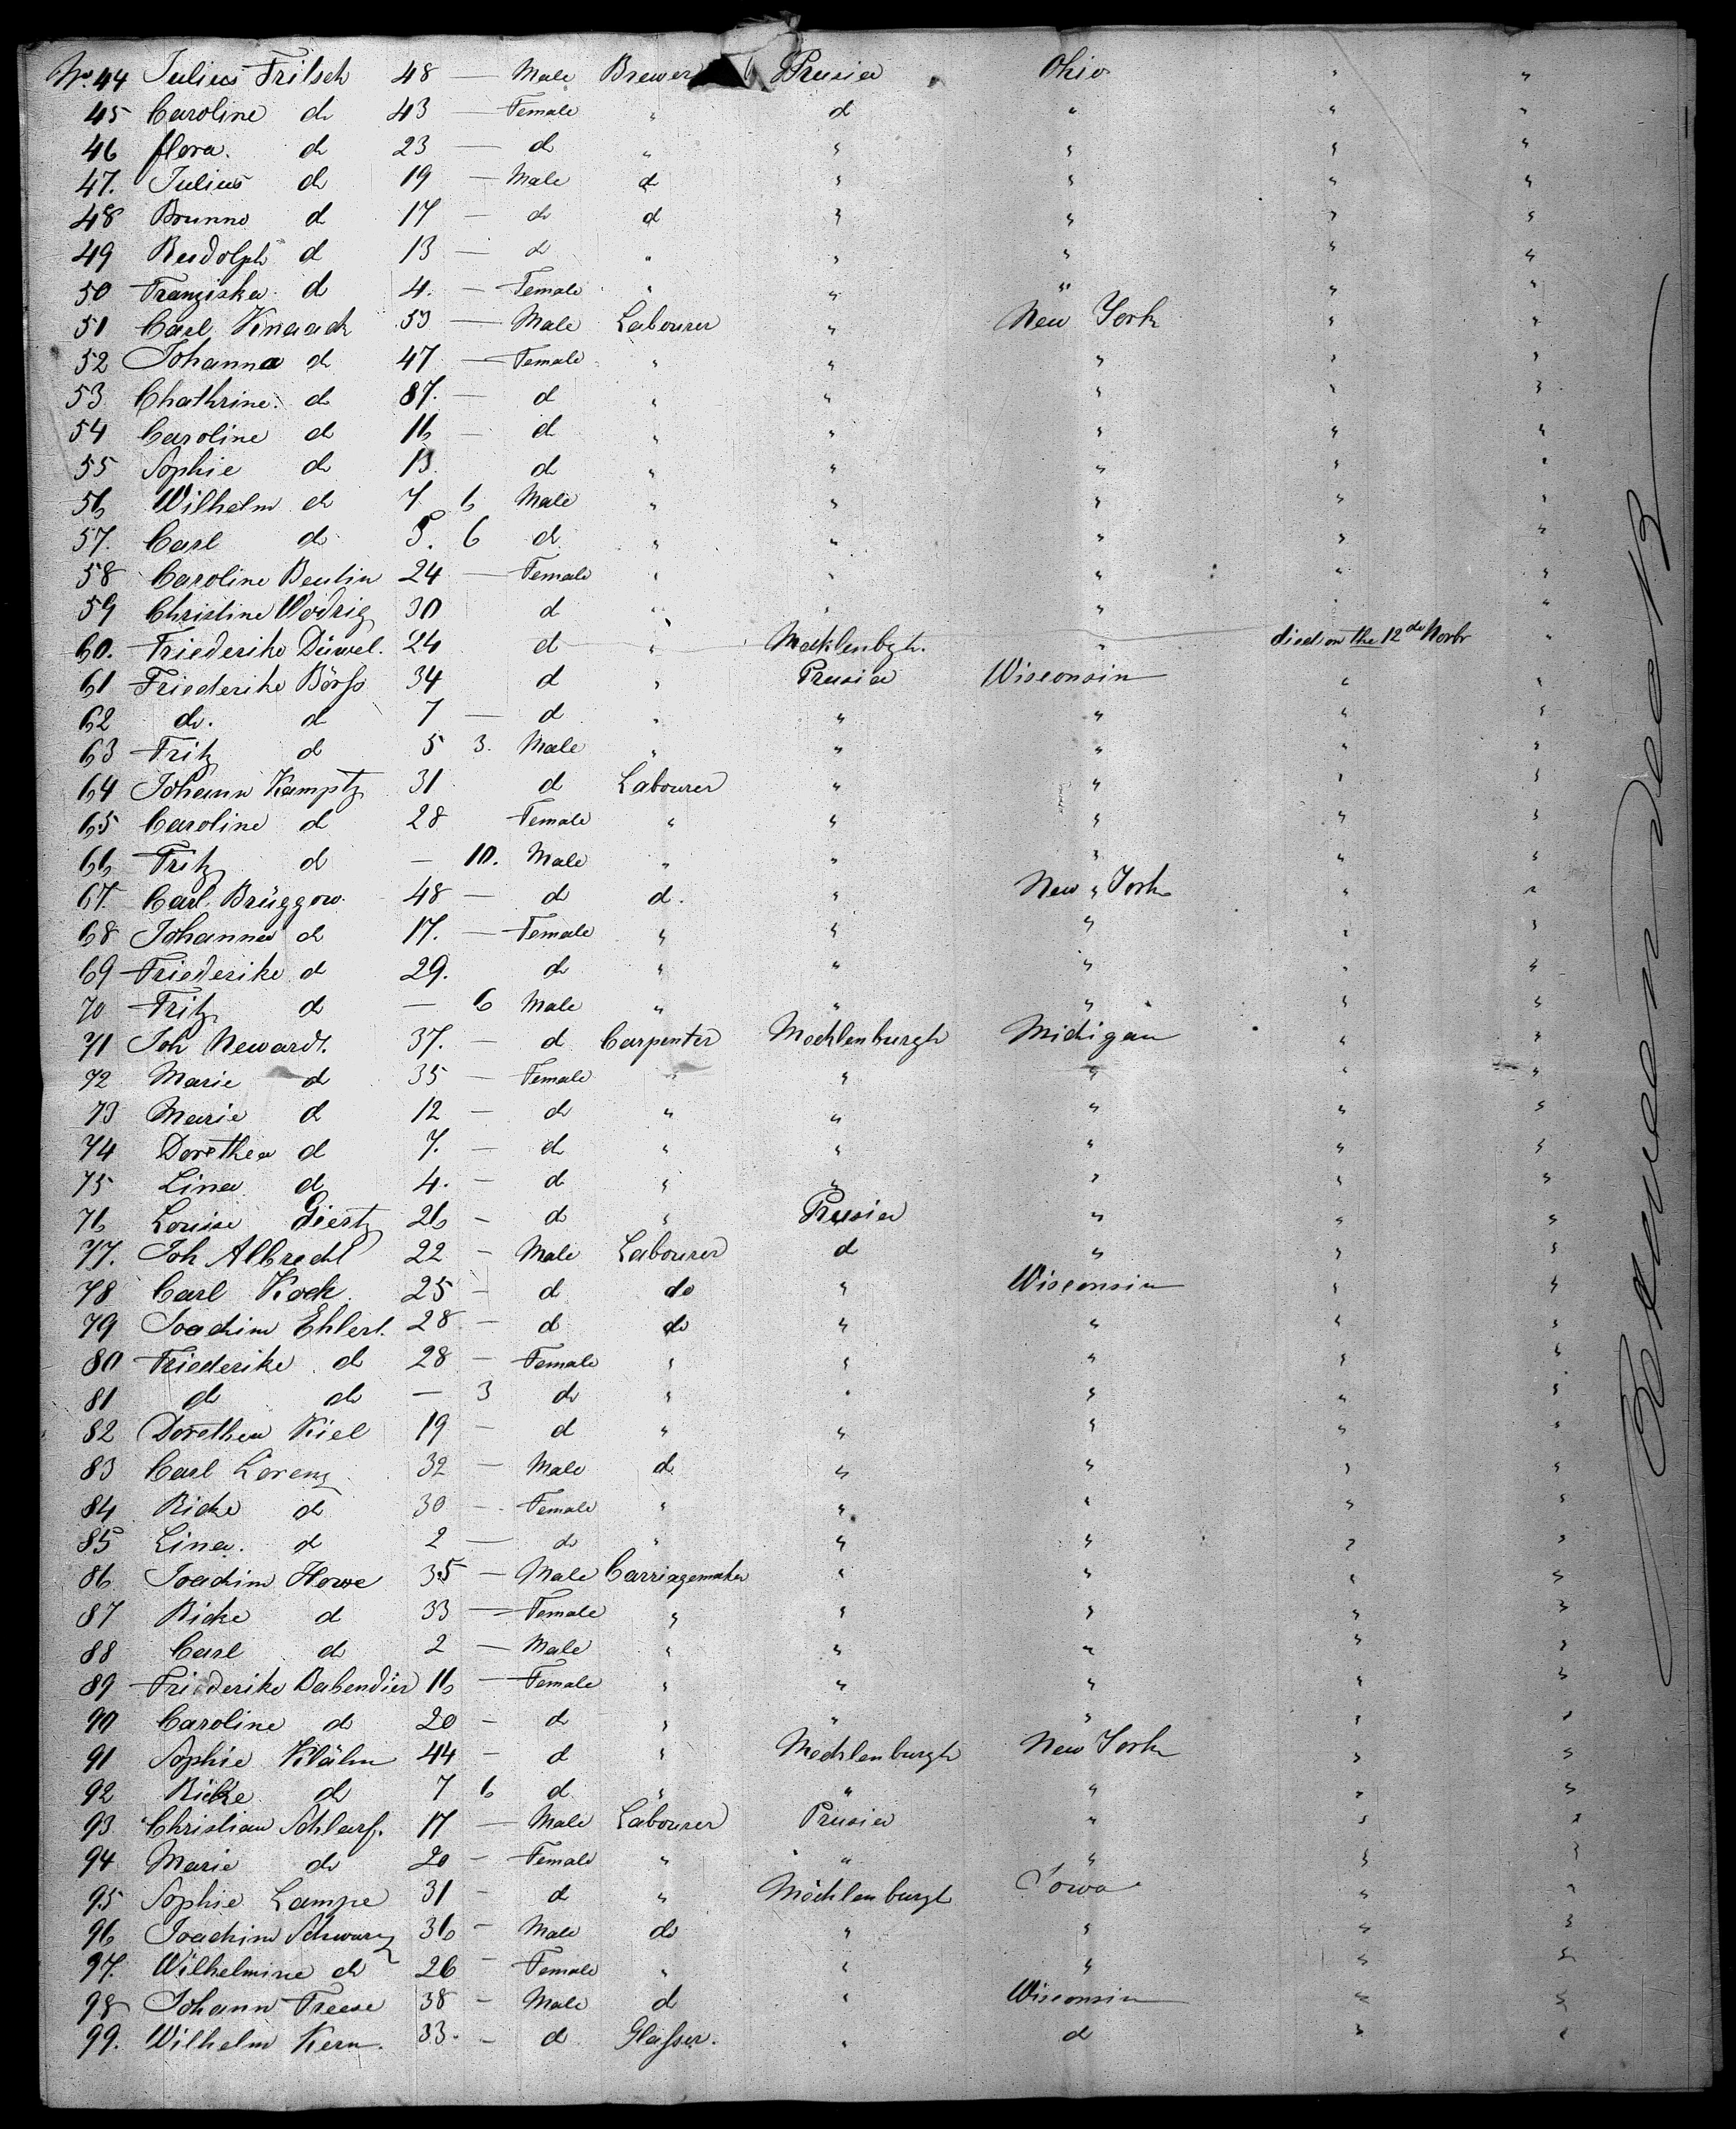 No. 44 Julius Fritsch 48 — Male Brewer Prusia Ohio " "
45 Caroline do 43 — Female " d " " "
46 flora. do 23 — d " " " " "
47. Julius do 19 — Male d " " " "
48 Brunno d 17 — do d " " " "
49 Rudolph d 13 — d " " " " "
50 Franziska d 4. — Female " " " " "
51 Carl Knaack 53 — Male Labourer " New York " "
52 Johanna d 47 — Female " " " " "
53 Chathrine. d 87. — d " " " " "
54 Caroline d 16 — d " " " " "
55 Sophie do 13. d " " " " "
56 Wilhelm do 7 6 Male " " " " "
57. Carl do 5. 6 d " " " " "
58 Caroline Beutin 24 — Female " " " " "
59 Christine Wodrig 30 d " " " " "
60. Friederike Düwel. 24 d " Meklenbgh. " died on the 12de Novbr "
61 Friederike Börss 34 d " Prusia Wisconsin " "
62 do. d 7 — d " " " " "
63 Fritz d 5 3. Male " " " " "
64 Johann Kamptz 31 d Labourer " " " "
65 Caroline d 28 Female " " " " "
66 Fritz d — 10. Male " " " " "
67. Carl Brüggow. 48 — d d. " New York " "
68 Johanna d 17. — Female " " " " "
69 Friederike d 29. do " " " " "
70 Fritz do — 6 Male " " " " "
71 Joh Newardt. 37. — d Carpenter Mecklenburgh Michigan " "
72 Marie d 35 — Female " " " " "
73 Marie d 12 — do " " " " "
74 Dorothea d 7. — d " " " " "
75 Lina d 4. — d " " " " "
76 Louise Giertz 26 — d " Prusia " " "
77. Joh Albrecht 22 — Male Labourer d " " "
78 Carl Kock 25 — d do " Wisconsin " "
79 Joachim Ehlert. 28 — d do " " " "
80 Friederike d 28 — Female " " " " "
81 do do — 3 do " " " " "
82 Dorothea Kiel 19 — d " " " " "
83 Carl Lorenz 32 — Male d " " " "
84 Ricke d 30 — Female " " " " "
85 Lina. d 2 — do " " " " "
86 Joachim Howe 35 — Male Carriagemaker " " " "
87 Ricke d 33 — Female " " " " "
88 Carl do 2 — Male " " " " "
89 Friederike Babendier 16 — Female " " " " "
90 Caroline d 20 — d " " " " "
91 Sophie Klähn 44 — d " Mecklenburgh New York " "
92 Ricke do 7 6 d " " " " "
93 Christian Schlarf. 17 — Male Labourer Prusia " " "
94 Marie do 20 — Female " " " " "
95 Sophie Lampe 31 — d " Mecklenburgh Iowa " "
96 Joachim Schwarz 36 — Male do " " " "
97. Wilhelmine do 26 — Female " " " " "
98 Johann Freese 38 — Male d " Wisconsin " "
99. Wilhelm Kern. 33. — d Glasser. " d " "